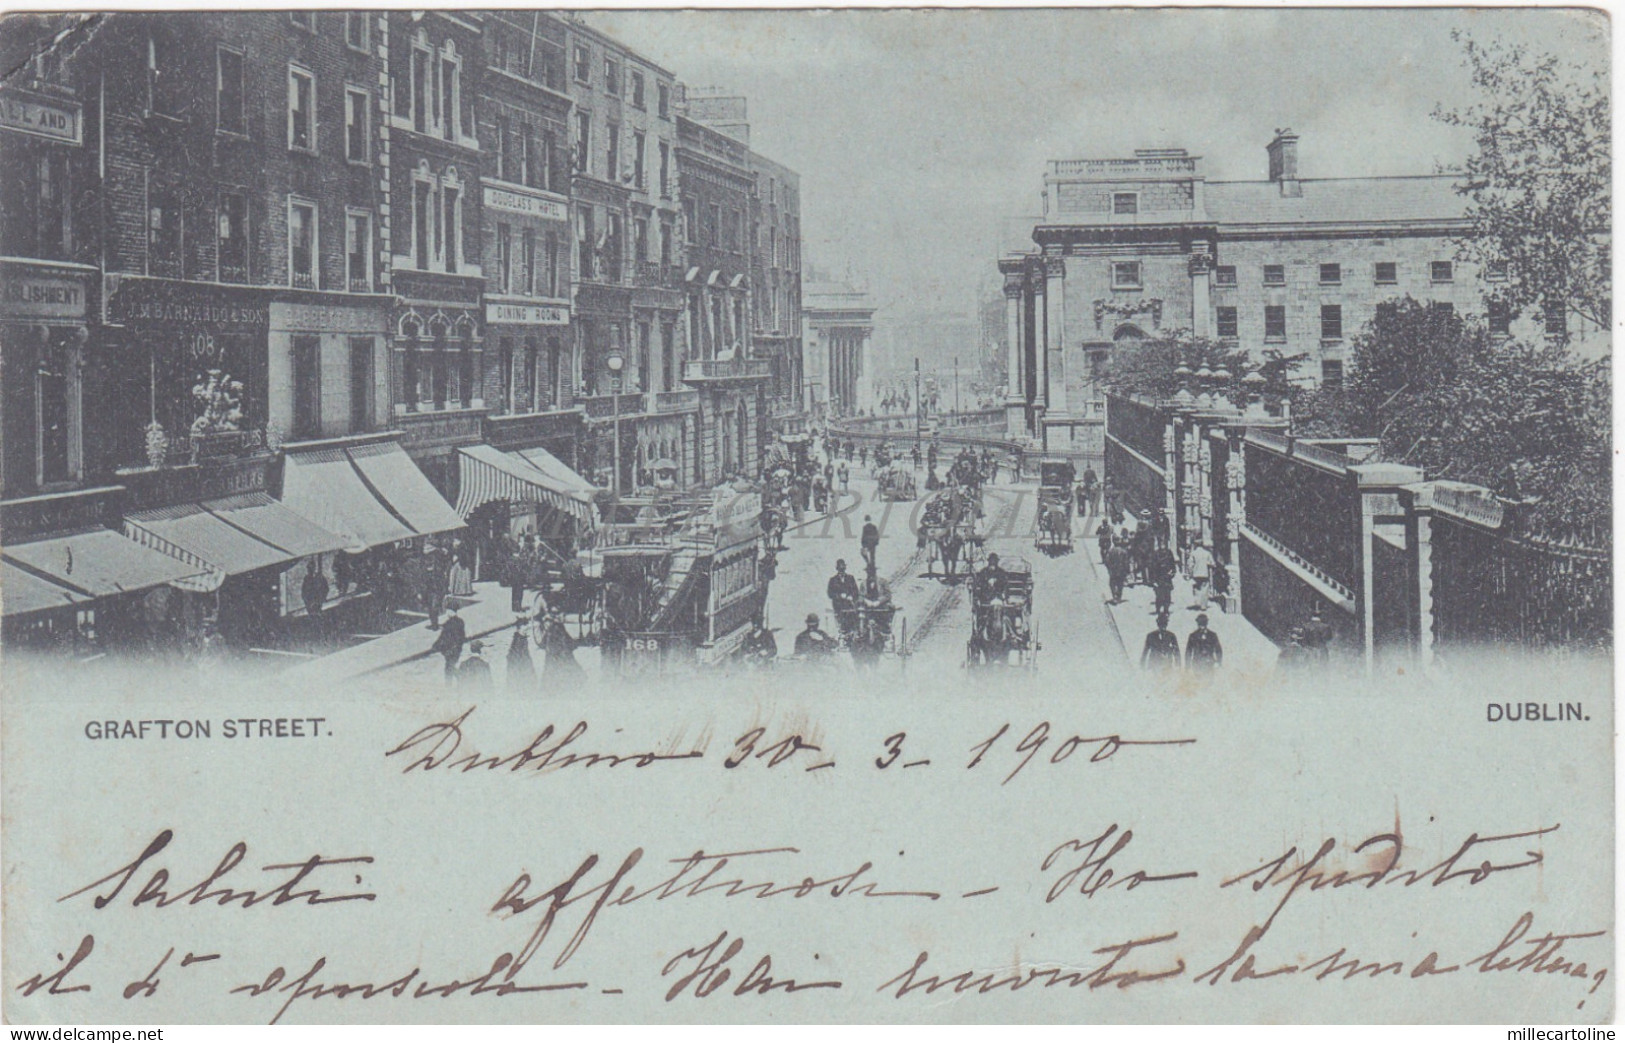 ALL AND
BLISHMENT
J.M BARNARDO & SON
108
DOUGLAS'S HOTEL
DINING ROOMS
107
168
MILLECARTOLINE
GRAFTON STREET.
DUBLIN.
Dublino 30 - 3 - 1900
Saluti affettuosi - Ho spedito
il 4° opuscolo - Hai ricevuto la mia lettera?
www.delcampe.net
millecartoline